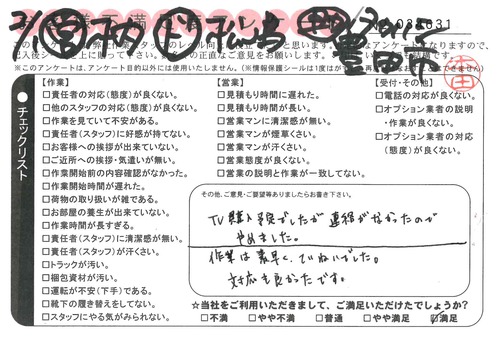 088031
このアンケートは
※このアンケートは、アンケート目的以外には使用いたしません。(※情報保護シールは1度はが
チェックリスト
【作業】
□責任者の対応(態度)が良くない。
□他のスタッフの対応(態度)が良くない。
□作業を見ていて不安がある。
□責任者(スタッフ)に好感が持てない。
□お客様への挨拶が出来ていない。
□ご近所への挨拶・気遣いが無い。
□作業開始前の内容確認がなかった。
□作業開始時間が遅れた。
□荷物の取り扱いが雑である。
□お部屋の養生が出来ていない。
□作業時間が長すぎる。
□責任者(スタッフ)に清潔感が無い。
□責任者(スタッフ)が汗くさい。
□トラックが汚い。
□梱包資材が汚い。
□運転が不安(下手)である。
□靴下の履き替えをしてない。
□スタッフにやる気がみられない。
【営業】
□見積もり時間に遅れた。
□見積もり時間が長い。
□営業マンに清潔感が無い。
□営業マンが煙草くさい。
□営業マンが汗くさい。
□営業態度が良くない。
□営業の説明と作業が一致してない。
【受付・その他】
□電話の対応が良くない。
□オプション業者の説明
・作業が良くない。
□オプション業者の対応
(態度)が良くない。
その他、ご意見・ご要望等ありましたらお書き下さい。
TV購入予定でしたが連絡がなかったので
やめました。
作業は素早く、ていねいでした。
対応も良かったです。
☆当社をご利用いただきまして、ご満足いただけたでしょうか?
□不満 □やや不満 □普通 □やや満足 ☑満足